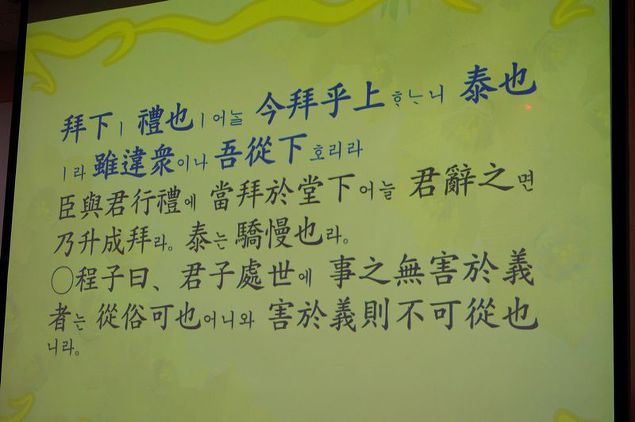 拜下ㅣ 禮也ㅣ어늘 今拜乎上ᄒᆞᄂᆞ니 泰也
ㅣ라 雖違衆이나 吾從下호리라
臣與君行禮에 當拜於堂下어늘 君辭之면
乃升成拜라。 泰는 驕慢也라。
○程子曰、君子處世에 事之無害於義
者는 從俗可也어니와 害於義則不可從也
니라。